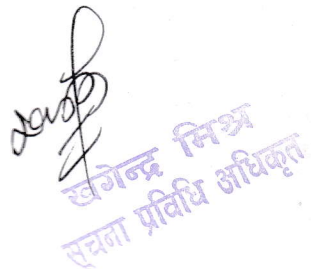 खगेन्द्र मिश्र
सूचना प्रविधि अधिकृत